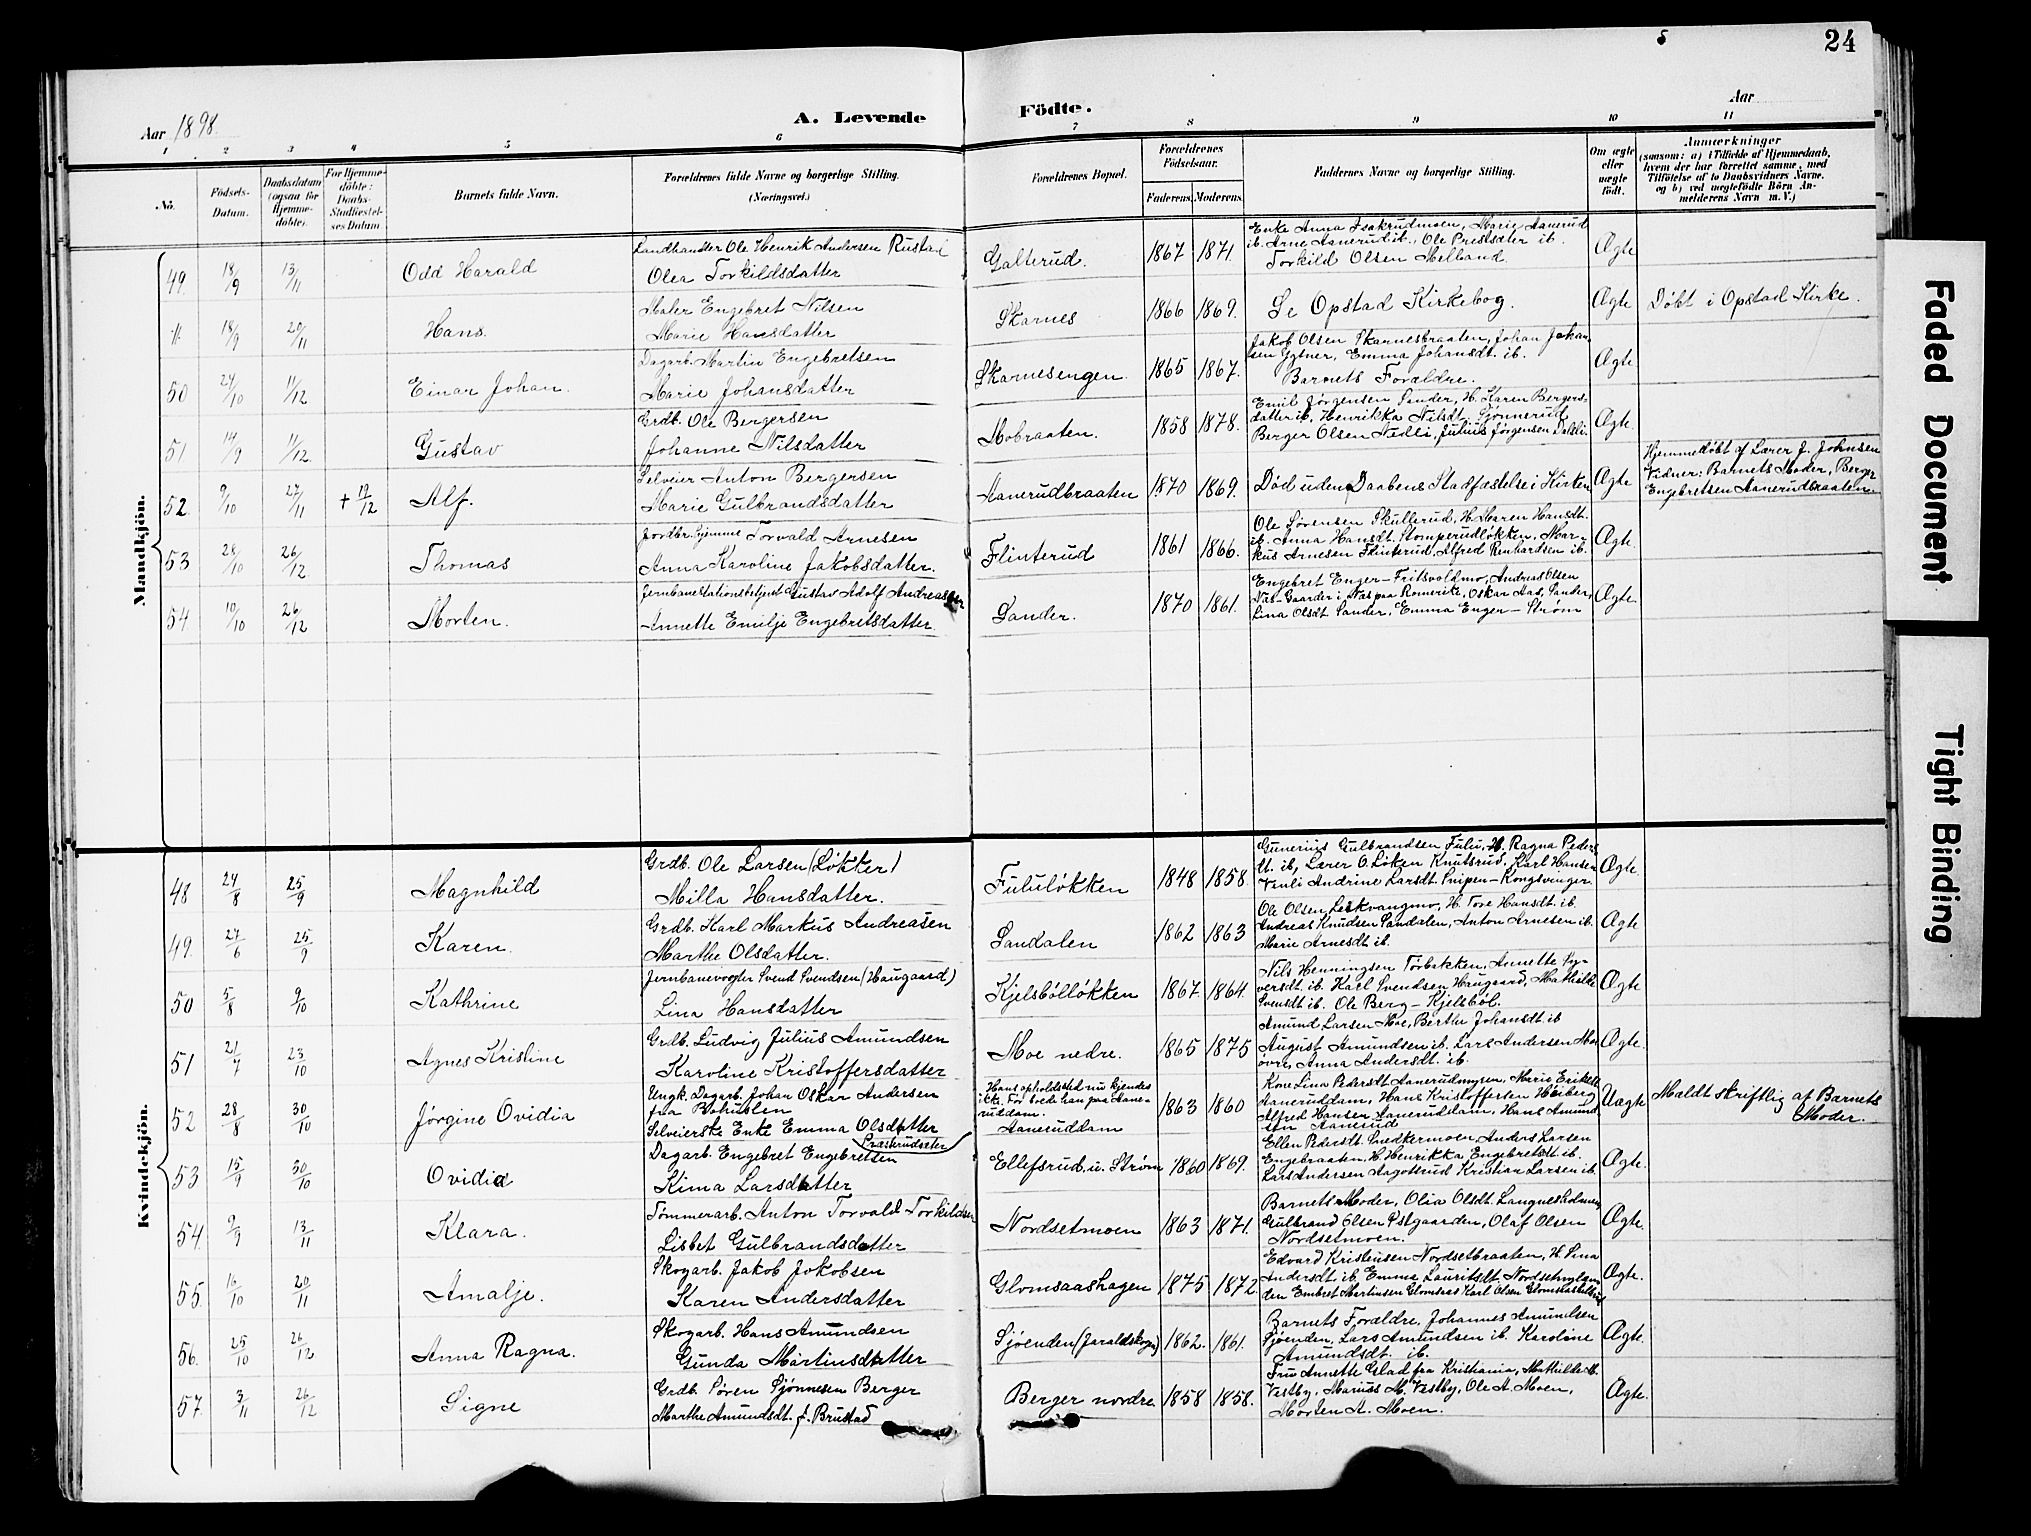 24
Aar 1898.
A. Levende Födte.
Aar
1 2 3 4 5 6 7 8 9 10 11
No.
Födsels-Datum.
Daabsdatum (ogsaa for Hjemme-döbte).
For Hjemme-döbte: Daabs-Stadfæstel-ses Datum
Barnets fulde Navn.
Forældrenes fulde Navne og borgerlige Stilling. (Næringsvei.)
Forældrenes Bopæl.
Forældrenes Födselsaar.
Faderens. Moderens.
Faddernes Navne og borgerlige Stilling.
Om ægte eller uægte födt.
Anmærkninger (saasom: a) i Tilfælde af Hjemmedaab, hvem der har forrettet samme, med Tilföielse af to Daabsvidners Navne, og b) ved uægtefödte Börn Anmelderens Navn m. V.)
Mandkjön.
49. 18/9 13/11 Odd Harald
Landhandler Ole Henrik Andersen Rustad
Olea Torkildsdatter
Galterud. 1867 1871.
Enke Anna Isakrudmoen, Marie Aanerud
ib. Arne Aanerud ib., Ole Prestsæter ib.
Torkild Olsen Melband.
Ægte
11. 18/9 20/11 Hans.
Maler Engebret Nilsen
Marie Hansdatter
Skarnes 1866 1869.
Se Opstad Kirkebog.
Ægte Døbt i Opstad Kirke.
50 24/10 11/12 Einar Johan.
Dagarb. Martin Engebretsen
Marie Johansdatter
Skarnesengen. 1865 1867.
Jakob Olsen Skarnesbraaten, Johan Johan
sen Ygtner, Emma Johansdt. ib.
Barnets Forældre.
Ægte
51 14/9 11/12. Gustav
Grdb. Ole Bergersen
Johanne Nilsdatter
Mobraaten. 1858 1878.
Emil Jørgensen Sander, H. Karen Bergers-
datter ib, Henrikka Nilsdt. Sjønnerud
Berger Olsen Nedli, Julius Jørgensen Dalsli.
Ægte.
52 9/10 27/11 + 19/12 Alf.
Selveier Anton Bergersen
Marie Gulbrandsdatter
Aanerudbraaten 1870 1869.
Død uden Daabens Stadfæstelse i Kirken
Ægte
Hjemmedøbt af Lærer J. Johnsen
Vidner: Barnets Moder, Berger
Engebretsen Aanerudbraaten
53 28/10 26/12 Thomas
Jordbr. hjemme Torvald Arnesen
Anna Karoline Jakobsdatter.
Flinterud 1861 1866.
Ole Sørensen Skullerud, H. Maren Hansdt.
ib. Anna Hansdt. Stomperudløkken, Mar-
kus Arnesen Flinterud, Alfred Renhardsen ib.
Ægte.
54 10/10 26/12 Morten.
Jernbanestationsbetjent Gustav Adolf Andreassen
Annette Emilje Engebretsdatter
Sander. 1870 1861.
Engebret Enger–Fritsvoldmo, Andreas Olsen
Næs-Gaarder i Næs paa Romerike, Oskar Aas, Sander,
Lina Olsdt Sander, Emma Enger–Strøm
Ægte
Kvindekjön.
48 24/8 25/9 Magnhild
Grdb. Ole Larsen (Løkter)
Milla Hansdatter.
Fululøkken 1848 1858.
Gunerius Gulbrandsen Fulu, H. Ragna Peders
dt. ib, Lærer O. Løken Knutsrud, Karl Hansen
Venli Andrine Larsdt. Snipen–Kongsvinger
Ægte.
49. 27/6 25/9 Karen.
Grdb. Karl Markus Andreasen
Marthe Olsdatter.
Sandalen 1862 1863
Ole Olsen Leskvangmo, H. Tore Hansdt. ib.
Andreas Knudsen Sandalen, Anton Arnesen ib.
Marie Arnesdt ib.
Ægte
50 5/8 9/10 Kathrine
Jernbanevogter Svend Svendsen (Haugaard)
Lina Hansdatter
Kjelsbølløkken 1867. 1864.
Nils Henningsen Tørbakken, Annette Sy-
versdt. ib. Karl Svendsen Haugaard, Mathilde
Svensdt ib. Ole Berg – Kjelsbøl.
Ægte
51 21/7 23/10 Agnes Kristine
Grdb. Ludvig Julius Amundsen
Karoline Kristoffersdatter
Moe nedre. 1865 1875
Amund Larsen Moe, Berthe Johansdt ib
August Amundsen ib. Lars Andersen Moe
øvre, Anna Andersdt. ib.
Ægte.
52 28/8 30/10 Jørgine Ovidia
Ungk. Dagarb. Johan Oskar Andersen
fra Bohuslen
Selveierske Enke Emma Olsdatter
Hans opholdssted nu kjendes
ikke. Før boede han paa Aane-
ruddam.
Aaneruddam
1863 1860
Kone Lina Pedersdt Aanerudmyren, Marie Eriksdt
Aaneruddam, Hans Kristoffersen Høiberg
Alfred Hansen Aaneruddam, Hans Amund
sen Aanerud
Uægte Meldt skriftlig af Barnets
Moder.
53 15/9 30/10 Ovidia
Dagarb. Engebret Engebretsen
Kima Larsdatter
Ellefsrud u. Strøm 1860 1869.
Ellen Pedersdt. Snedkermoen, Anders Larsen
Engebraaten, H. Henrikka Engebretsdt ib.
Lars Andersen Aagottrud Kristian Larsen ib.
Ægte.
54. 9/9 13/11 Klara.
Tømmerarb. Anton Torvald Torkildsen
Lisbet Gulbrandsdatter
Nordsetmoen 1863 1871.
Barnets Moder, Olia Olsdt. Langnesholmen,
Gulbrand Olsen Ostgaarden, Olaf Olsen
Nordsetmoen.
Ægte.
55. 16/10 20/11 Amalje.
Skogarb. Jakob Jakobsen
Karen Andersdatter
Glomsaashagen 1875 1872
Edvard Kristensen Nordsetbraaten, H. Lina
Andersdt ib. Emma Lauritsdt. Nordsetmylen-
den Embret Martinsen Glomsaas Karl Olsen
Ægte.
56. 25/10 26/12 Anna Ragna.
Skogarb. Hans Amundsen
Gunda Martinsdatter
Sjøenden (Jaraldskogen) 1862. 1861.
Barnets Forældre, Johannes Amundsen
Sjøenden, Lars Amundsen ib. Karoline
Amundsdt. ib.
Ægte.
57. 3/11 26/12 Signe
Grdb. Søren Sjønnesen Berger
Marthe Amundsdt. f. Brustad
Berger nordre. 1858 1858.
Fru Annette Glad fra Kristiania, Mathilde M.
Vestby, Marius M. Vestby, Ole A. Moen,
Morten A. Moen.
Ægte.
Faded Document
Tight Binding